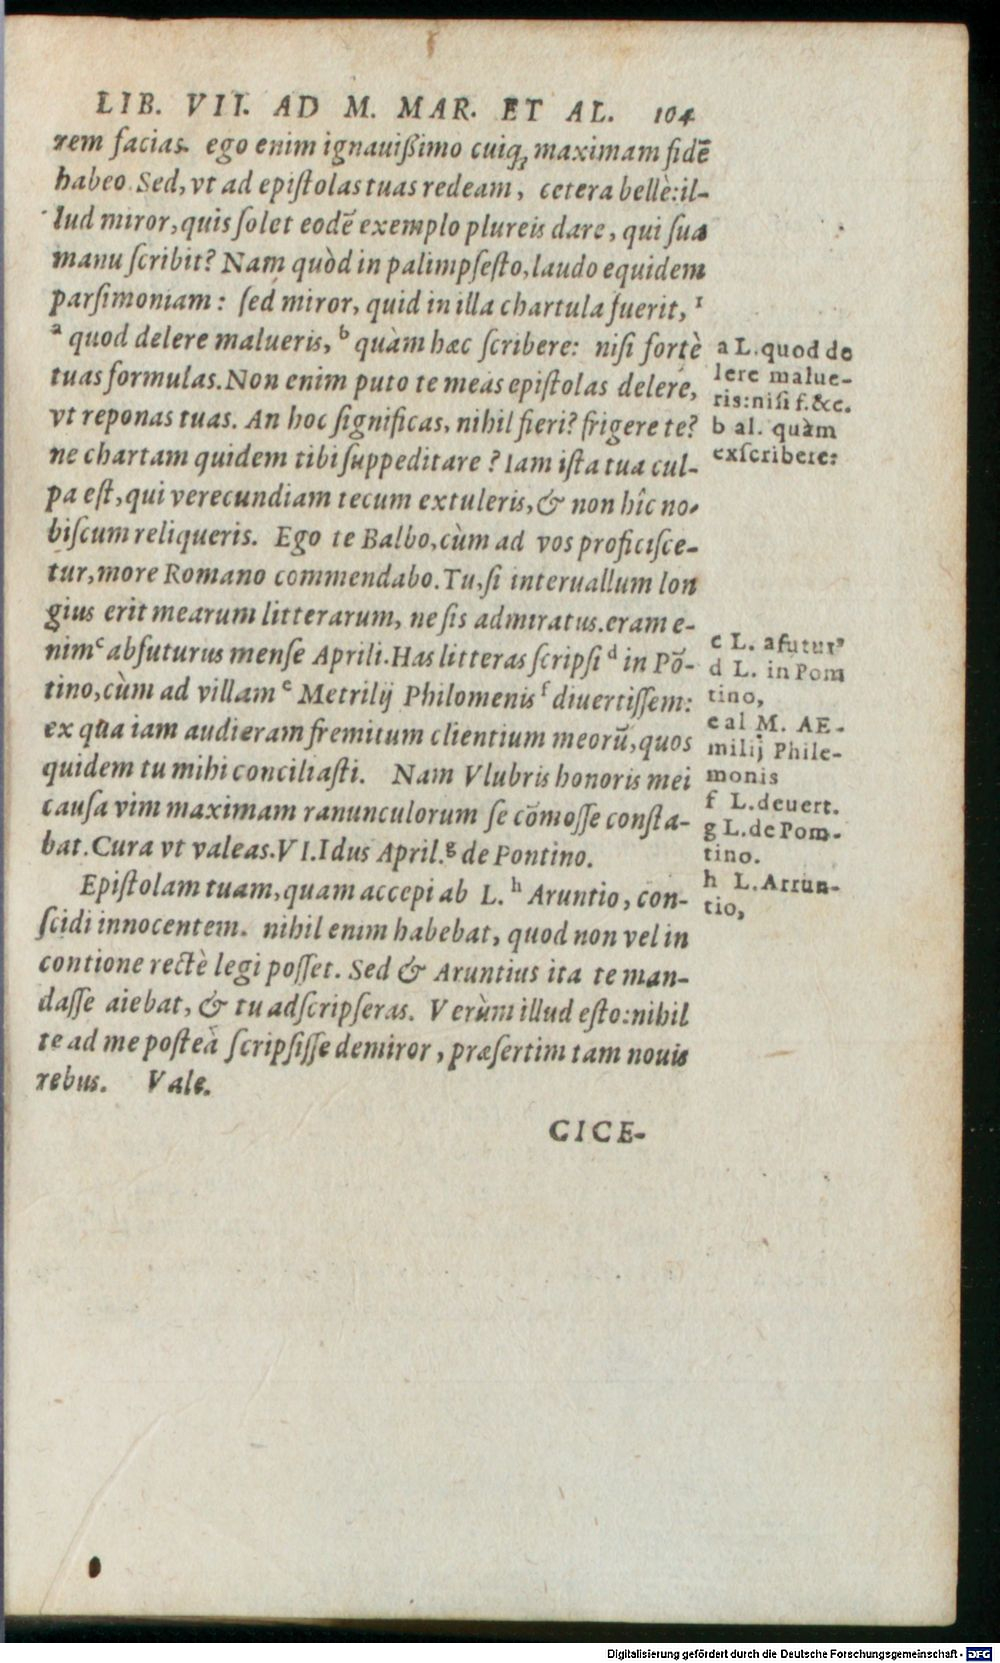 LIB. VII. AD M. MAR. ET AL. 104
rem facias. ego enim ignauißimo cuiq; maximam fidē
habeo. Sed, vt ad epiſtolas tuas redeam, cetera bellè: il-
lud miror, quis ſolet eodē exemplo plureis dare, qui ſua
manu ſcribit? Nam quòd in palimpſeſto, laudo equidem
parſimoniam: ſed miror, quid in illa chartula fuerit, ¹
ᵃ quod delere malueris, ᵇ quàm hæc ſcribere: niſi fortè
tuas formulas. Non enim puto te meas epiſtolas delere,
vt reponas tuas. An hoc ſignificas, nihil fieri? frigere te?
ne chartam quidem tibi ſuppeditare? Iam iſta tua cul-
pa eſt, qui verecundiam tecum extuleris, & non hîc no-
biſcum reliqueris. Ego te Balbo, cùm ad vos proficiſce-
tur, more Romano commendabo. Tu, ſi interuallum lon
gius erit mearum litterarum, ne ſis admiratus. eram e-
nim ᶜ abfuturus menſe Aprili. Has litteras ſcripſi ᵈ in Põ-
tino, cùm ad villam ᵉ Metrilij Philomenis ᶠ diuertiſſem:
ex qua iam audieram fremitum clientium meorũ, quos
quidem tu mihi conciliaſti. Nam Vlubris honoris mei
cauſa vim maximam ranunculorum ſe cõmoſſe conſta-
bat. Cura vt valeas. VI. Idus April. ᵍ de Pontino.
Epiſtolam tuam, quam accepi ab L. ʰ Aruntio, con-
ſcidi innocentem. nihil enim habebat, quod non vel in
contione rectè legi poſſet. Sed & Aruntius ita te man-
daſſe aiebat, & tu adſcripſeras. Verùm illud eſto: nihil
te ad me poſteà ſcripſiſſe demiror, præſertim tam nouis
rebus. Vale.
CICE-
a L. quod de
lere malue-
ris: niſi f. &c.
b al. quàm
exſcribere:
c L. afuturꝰ
d L. in Pom
tino,
e al M. AE-
milij Phile-
monis
f L. deuert.
g L. de Pom-
tino.
h L. Arrun-
tio,
Digitalisierung gefördert durch die Deutsche Forschungsgemeinschaft - DFG